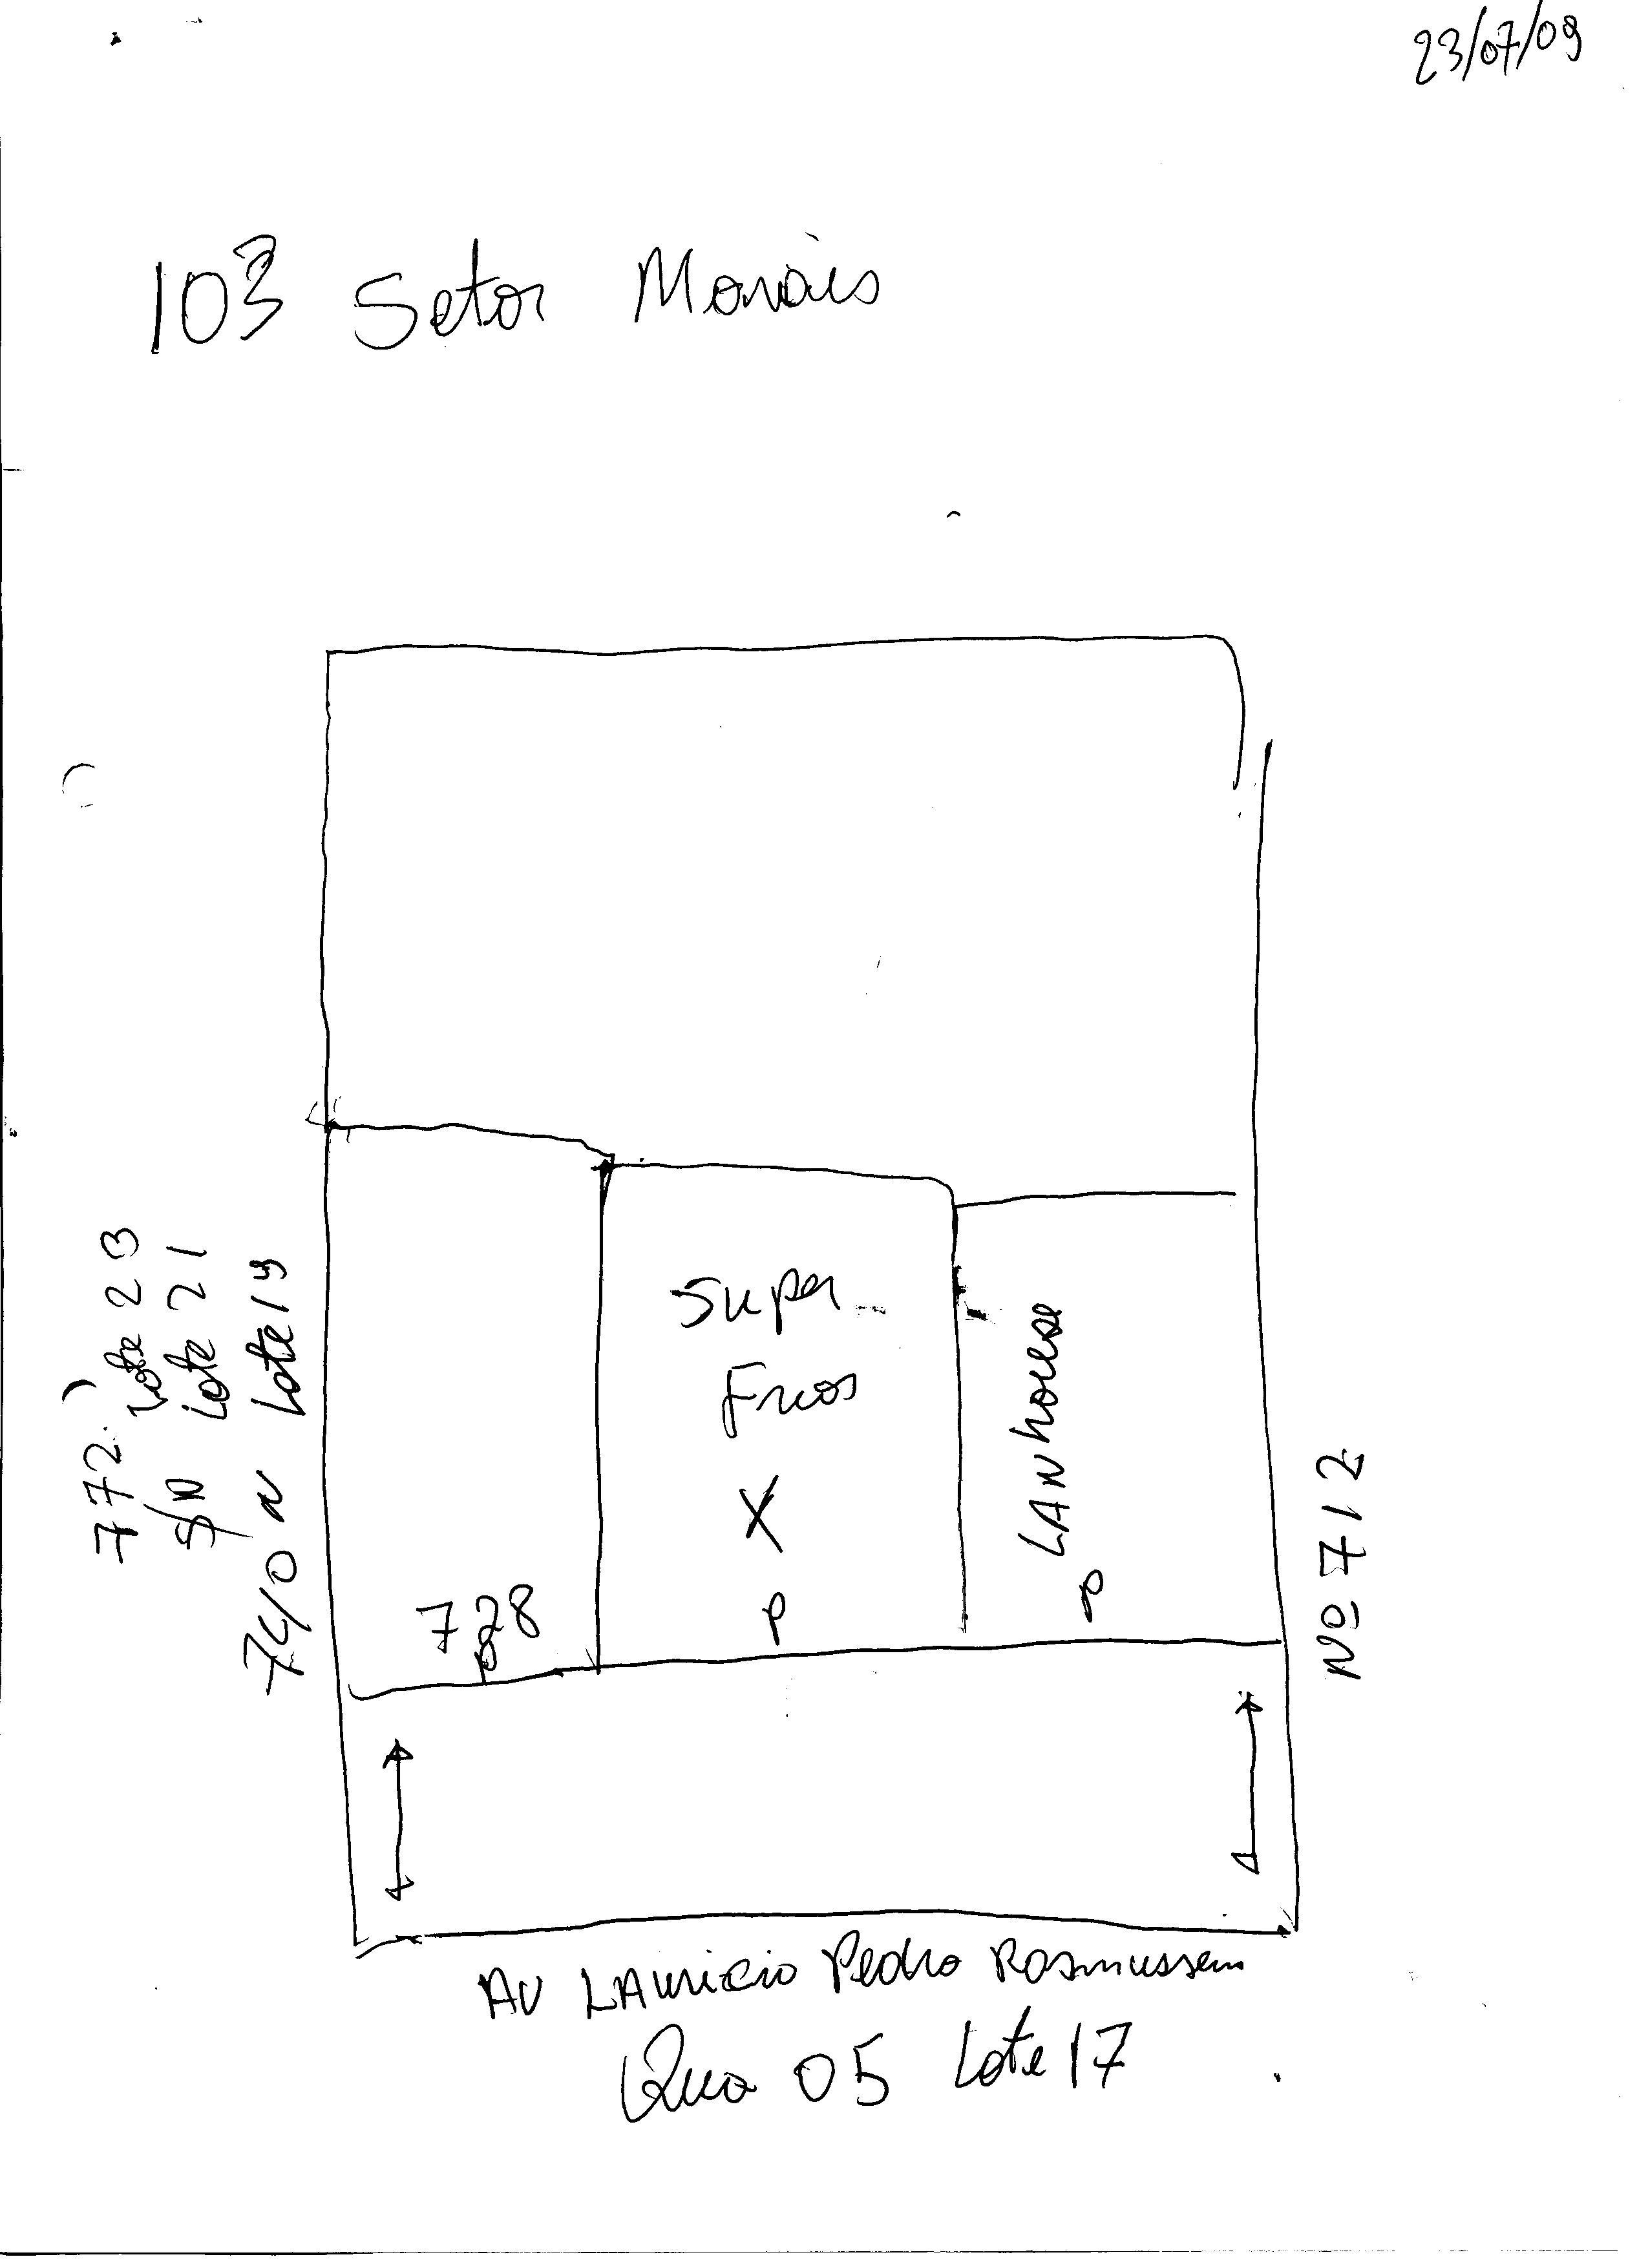 23/07/09
103 Setor Morais
772 Lote 23
S/N Lote 21
740 N Lote 19
Super
Frios
X
P
LANhouse
P
728
P
Nº 712
AV LAuricio Pedro Rasmussem
Qua 05 Lote 17